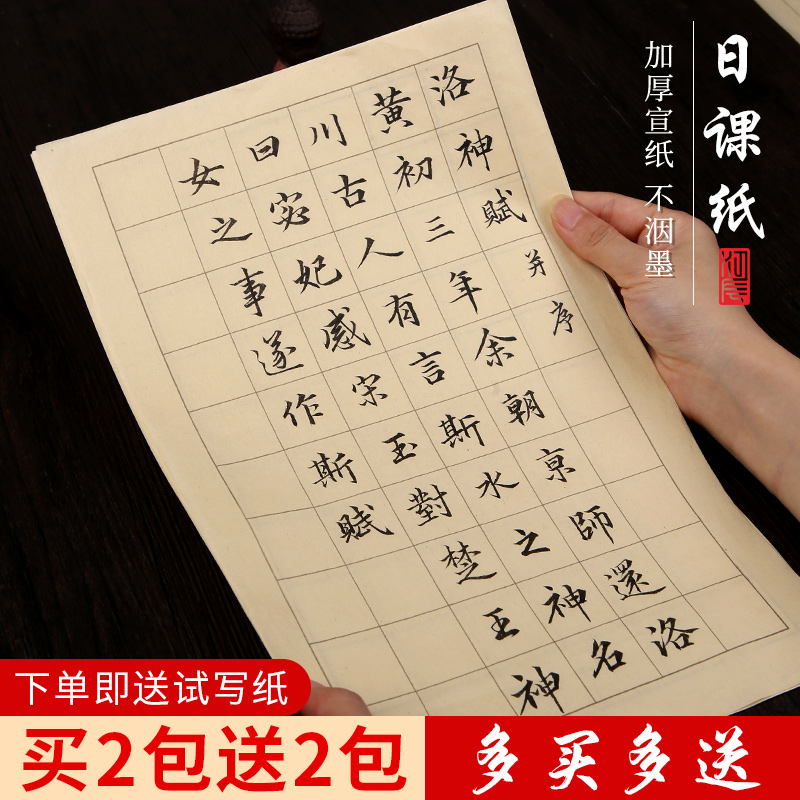 日课纸
加厚宣纸 不洇墨
洛神賦并序
黄初三年余朝京師還洛
川古人有言斯水之神名
曰宓妃感宋玉對楚王神
女之事遂作斯賦
下单即送试写纸
买2包送2包
多买多送